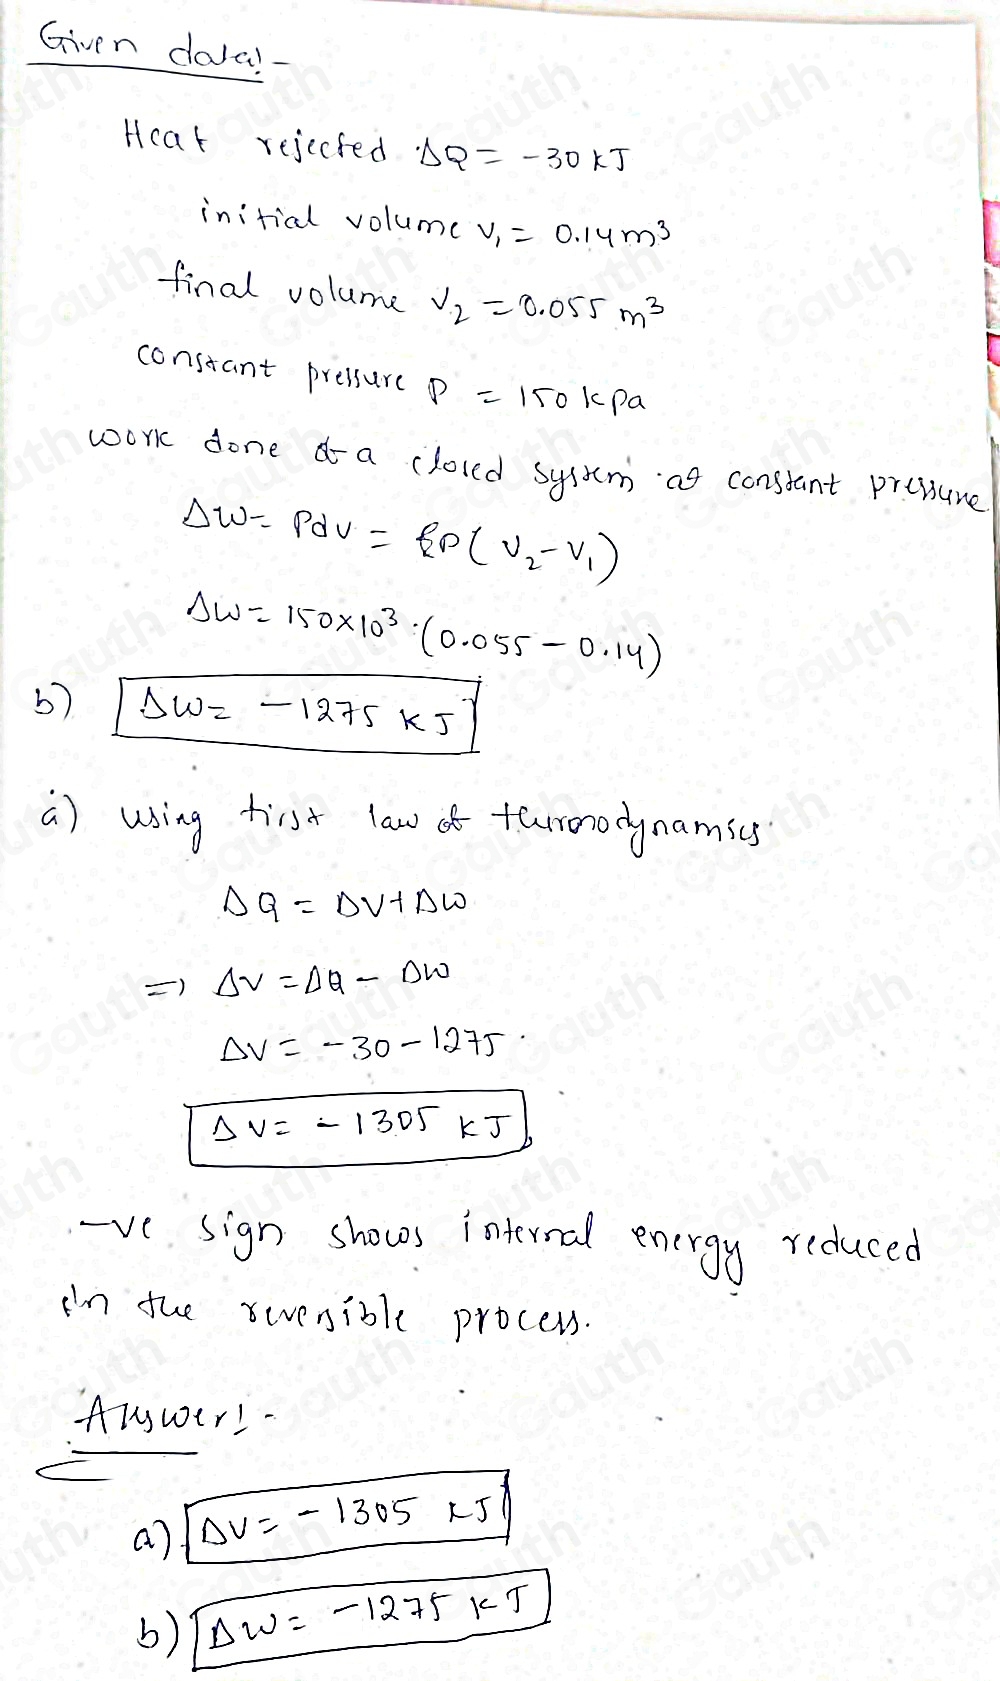 Given data:-
Heat rejected ΔQ = -30 kJ
initial volume V₁ = 0.14 m³
final volume V₂ = 0.055 m³
constant pressure P = 150 kpa
work done of a closed system at constant pressure
ΔW = PdV = P(V₂-V₁)
ΔW = 150×10³.(0.055-0.14)
b) ΔW = -1275 KJ
a) using first law of thermodynamics
ΔQ = ΔU+ΔW
=) ΔU = ΔQ - ΔW
ΔU = -30-1275.
ΔU = -1305 KJ
-ve sign shows internal energy reduced
in the reversible process.
Answer:-
a) ΔU = -1305 KJ
b) ΔW = -1275 KJ
Gauth